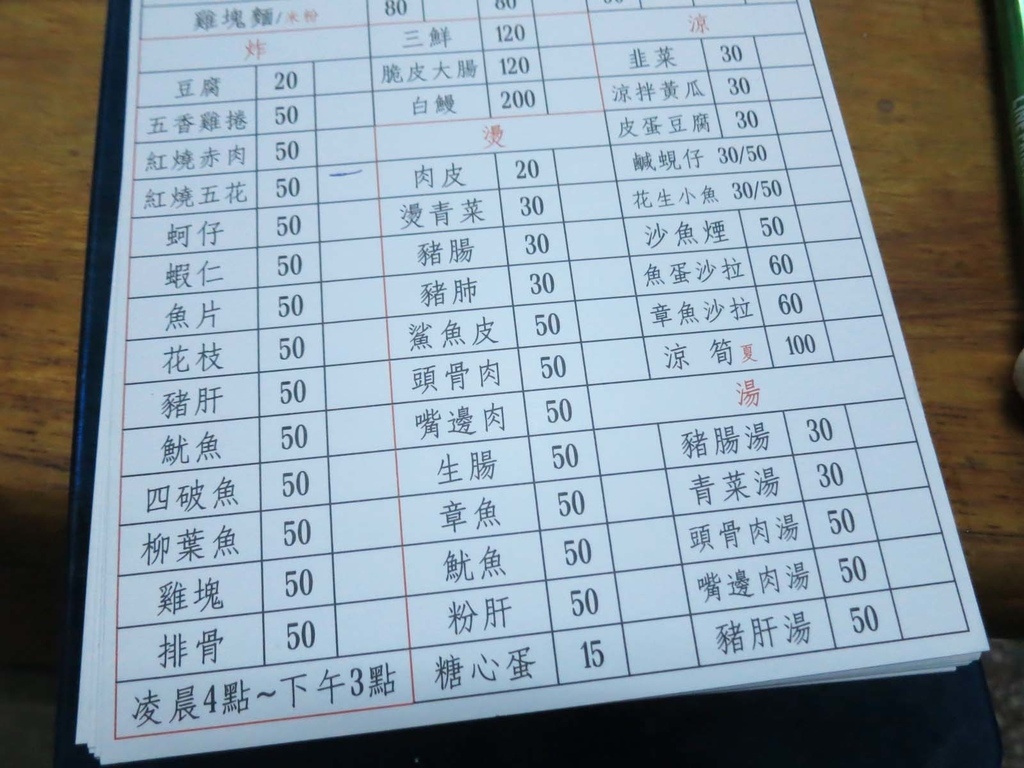 雞塊麵/米粉 80 80
炸
豆腐 20
五香雞捲 50
紅燒赤肉 50
紅燒五花 50
蚵仔 50
蝦仁 50
魚片 50
花枝 50
豬肝 50
魷魚 50
四破魚 50
柳葉魚 50
雞塊 50
排骨 50
凌晨4點~下午3點
三鮮 120
脆皮大腸 120
白鰻 200
燙
肉皮 20
燙青菜 30
豬腸 30
豬肺 30
鯊魚皮 50
頭骨肉 50
嘴邊肉 50
生腸 50
章魚 50
魷魚 50
粉肝 50
糖心蛋 15
涼
韭菜 30
涼拌黃瓜 30
皮蛋豆腐 30
鹹蜆仔 30/50
花生小魚 30/50
沙魚煙 50
魚蛋沙拉 60
章魚沙拉 60
涼筍夏 100
湯
豬腸湯 30
青菜湯 30
頭骨肉湯 50
嘴邊肉湯 50
豬肝湯 50